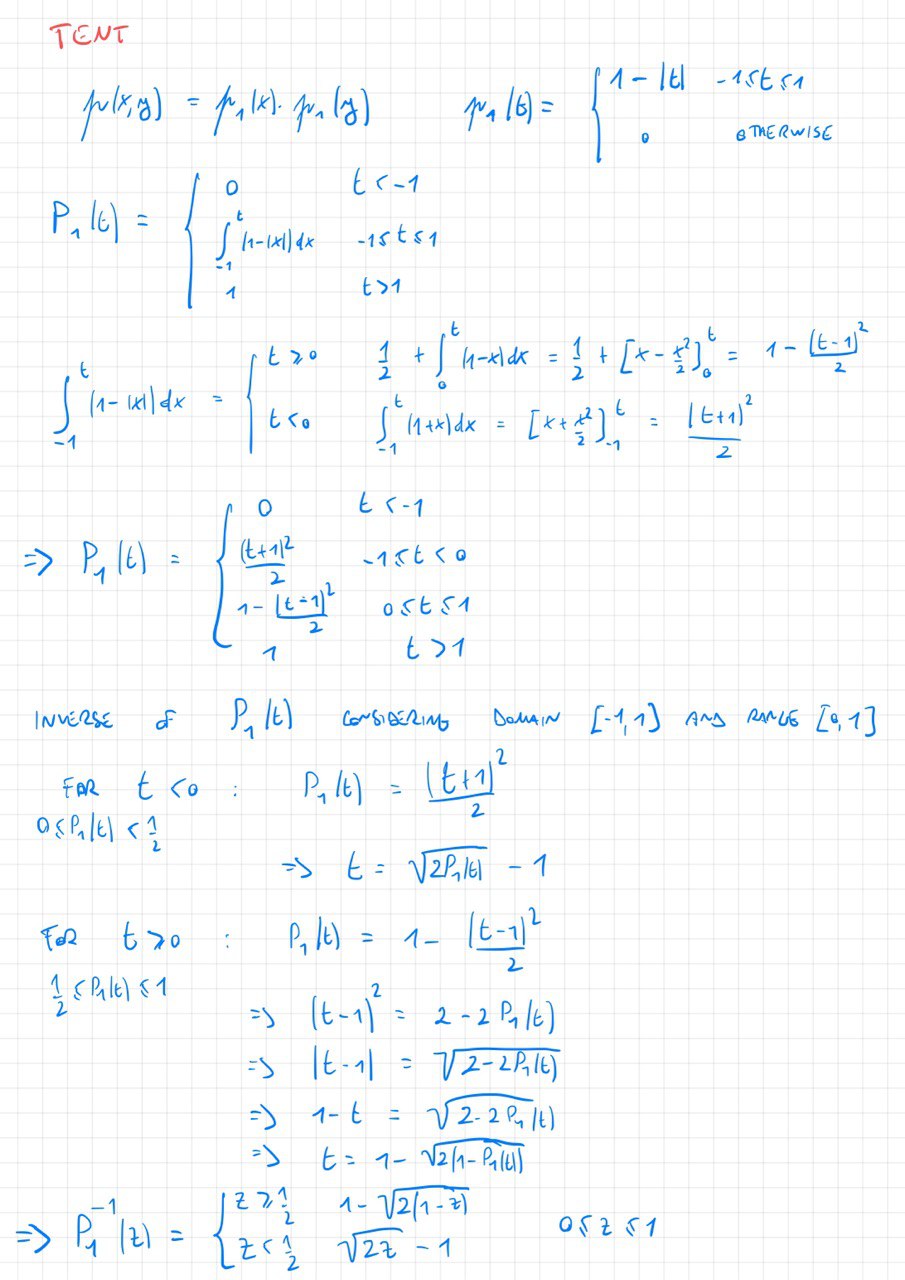 TENT
p(x,y) = p₁(x)· p₁(y)    p₁(t) = { 1 - |t|   -1 ≤ t ≤ 1
0   OTHERWISE
P₁(t) = { 0   t < -1
∫₋₁ᵗ (1-|x|)dx   -1 ≤ t ≤ 1
1   t > 1
∫₋₁ᵗ (1-|x|)dx = { t ≥ 0   1/2 + ∫₀ᵗ (1-x)dx = 1/2 + [x - x²/2]₀ᵗ = 1 - (t-1)²/2
t < 0   ∫₋₁ᵗ (1+x)dx = [x + x²/2]₋₁ᵗ = (t+1)²/2
=> P₁(t) = { 0   t < -1
(t+1)²/2   -1 ≤ t < 0
1 - (t-1)²/2   0 ≤ t ≤ 1
1   t > 1
INVERSE OF P₁(t) CONSIDERING DOMAIN [-1,1] AND RANGE [0,1]
FOR t < 0 :   P₁(t) = (t+1)²/2
0 ≤ P₁(t) < 1/2
=> t = √(2P₁(t)) - 1
FOR t ≥ 0 :   P₁(t) = 1 - (t-1)²/2
1/2 ≤ P₁(t) ≤ 1
=> (t-1)² = 2 - 2P₁(t)
=> |t-1| = √(2-2P₁(t))
=> 1-t = √(2-2P₁(t))
=> t = 1 - √(2(1-P₁(t)))
=> P₁⁻¹(z) = { z ≥ 1/2   1 - √(2(1-z))
z < 1/2   √(2z) - 1   0 ≤ z ≤ 1